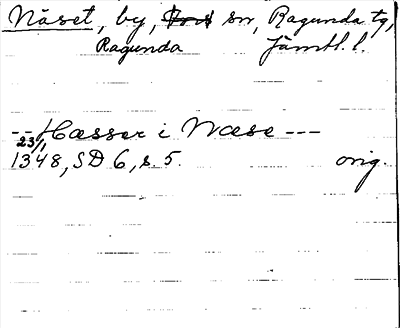 Näset, by, sn, Ragunda tg,
Ragunda Jämtl. l.
--- Hæsser i Næse ---
23/1
1348, SD 6, s. 5. orig.